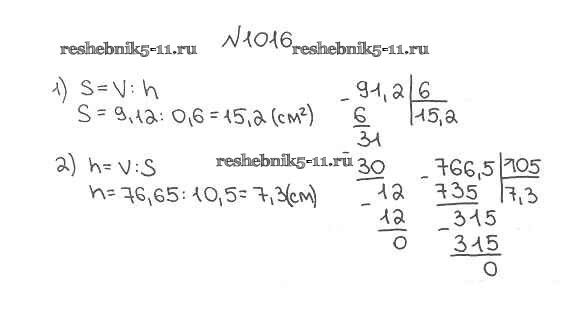 №1016
reshebnik5-11.ru reshebnik5-11.ru
1) S=V:h
S=9,12:0,6=15,2(см²)
91,2 6
- 6 15,2
31
- 30
12
- 12
0
2) h=V:S
reshebnik5-11.ru
h=76,65:10,5=7,3(см)
766,5 105
- 735 7,3
315
- 315
0